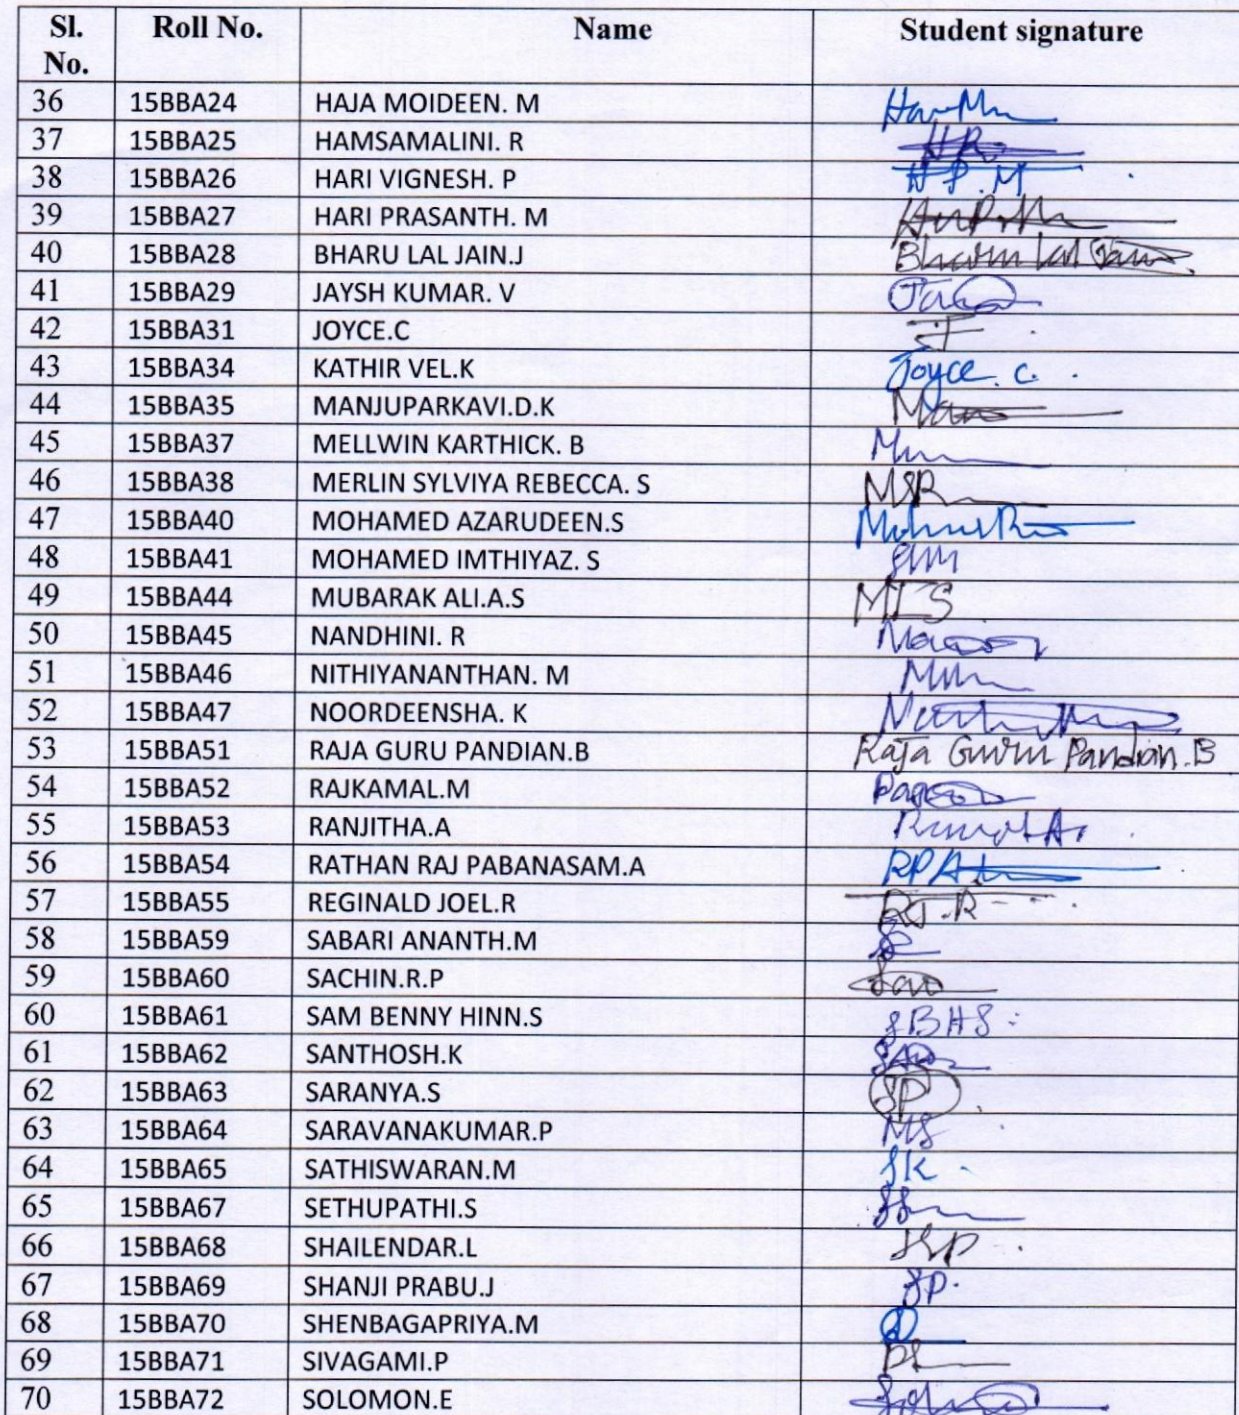 Sl. No. Roll No. Name Student signature
36 15BBA24 HAJA MOIDEEN. M
37 15BBA25 HAMSAMALINI. R HR
38 15BBA26 HARI VIGNESH. P H P. M
39 15BBA27 HARI PRASANTH. M
40 15BBA28 BHARU LAL JAIN.J Lal Jain
41 15BBA29 JAYSH KUMAR. V
42 15BBA31 JOYCE.C J
43 15BBA34 KATHIR VEL.K Joyce. C.
44 15BBA35 MANJUPARKAVI.D.K
45 15BBA37 MELLWIN KARTHICK. B
46 15BBA38 MERLIN SYLVIYA REBECCA. S MSR
47 15BBA40 MOHAMED AZARUDEEN.S
48 15BBA41 MOHAMED IMTHIYAZ. S
49 15BBA44 MUBARAK ALI.A.S MIS
50 15BBA45 NANDHINI. R
51 15BBA46 NITHIYANANTHAN. M
52 15BBA47 NOORDEENSHA. K
53 15BBA51 RAJA GURU PANDIAN.B Raja Guru Pandian.B
54 15BBA52 RAJKAMAL.M
55 15BBA53 RANJITHA.A
56 15BBA54 RATHAN RAJ PABANASAM.A
57 15BBA55 REGINALD JOEL.R RJ.R
58 15BBA59 SABARI ANANTH.M
59 15BBA60 SACHIN.R.P
60 15BBA61 SAM BENNY HINN.S SBHS
61 15BBA62 SANTHOSH.K
62 15BBA63 SARANYA.S SP
63 15BBA64 SARAVANAKUMAR.P MS
64 15BBA65 SATHISWARAN.M SK
65 15BBA67 SETHUPATHI.S
66 15BBA68 SHAILENDAR.L
67 15BBA69 SHANJI PRABU.J SP.
68 15BBA70 SHENBAGAPRIYA.M
69 15BBA71 SIVAGAMI.P
70 15BBA72 SOLOMON.E